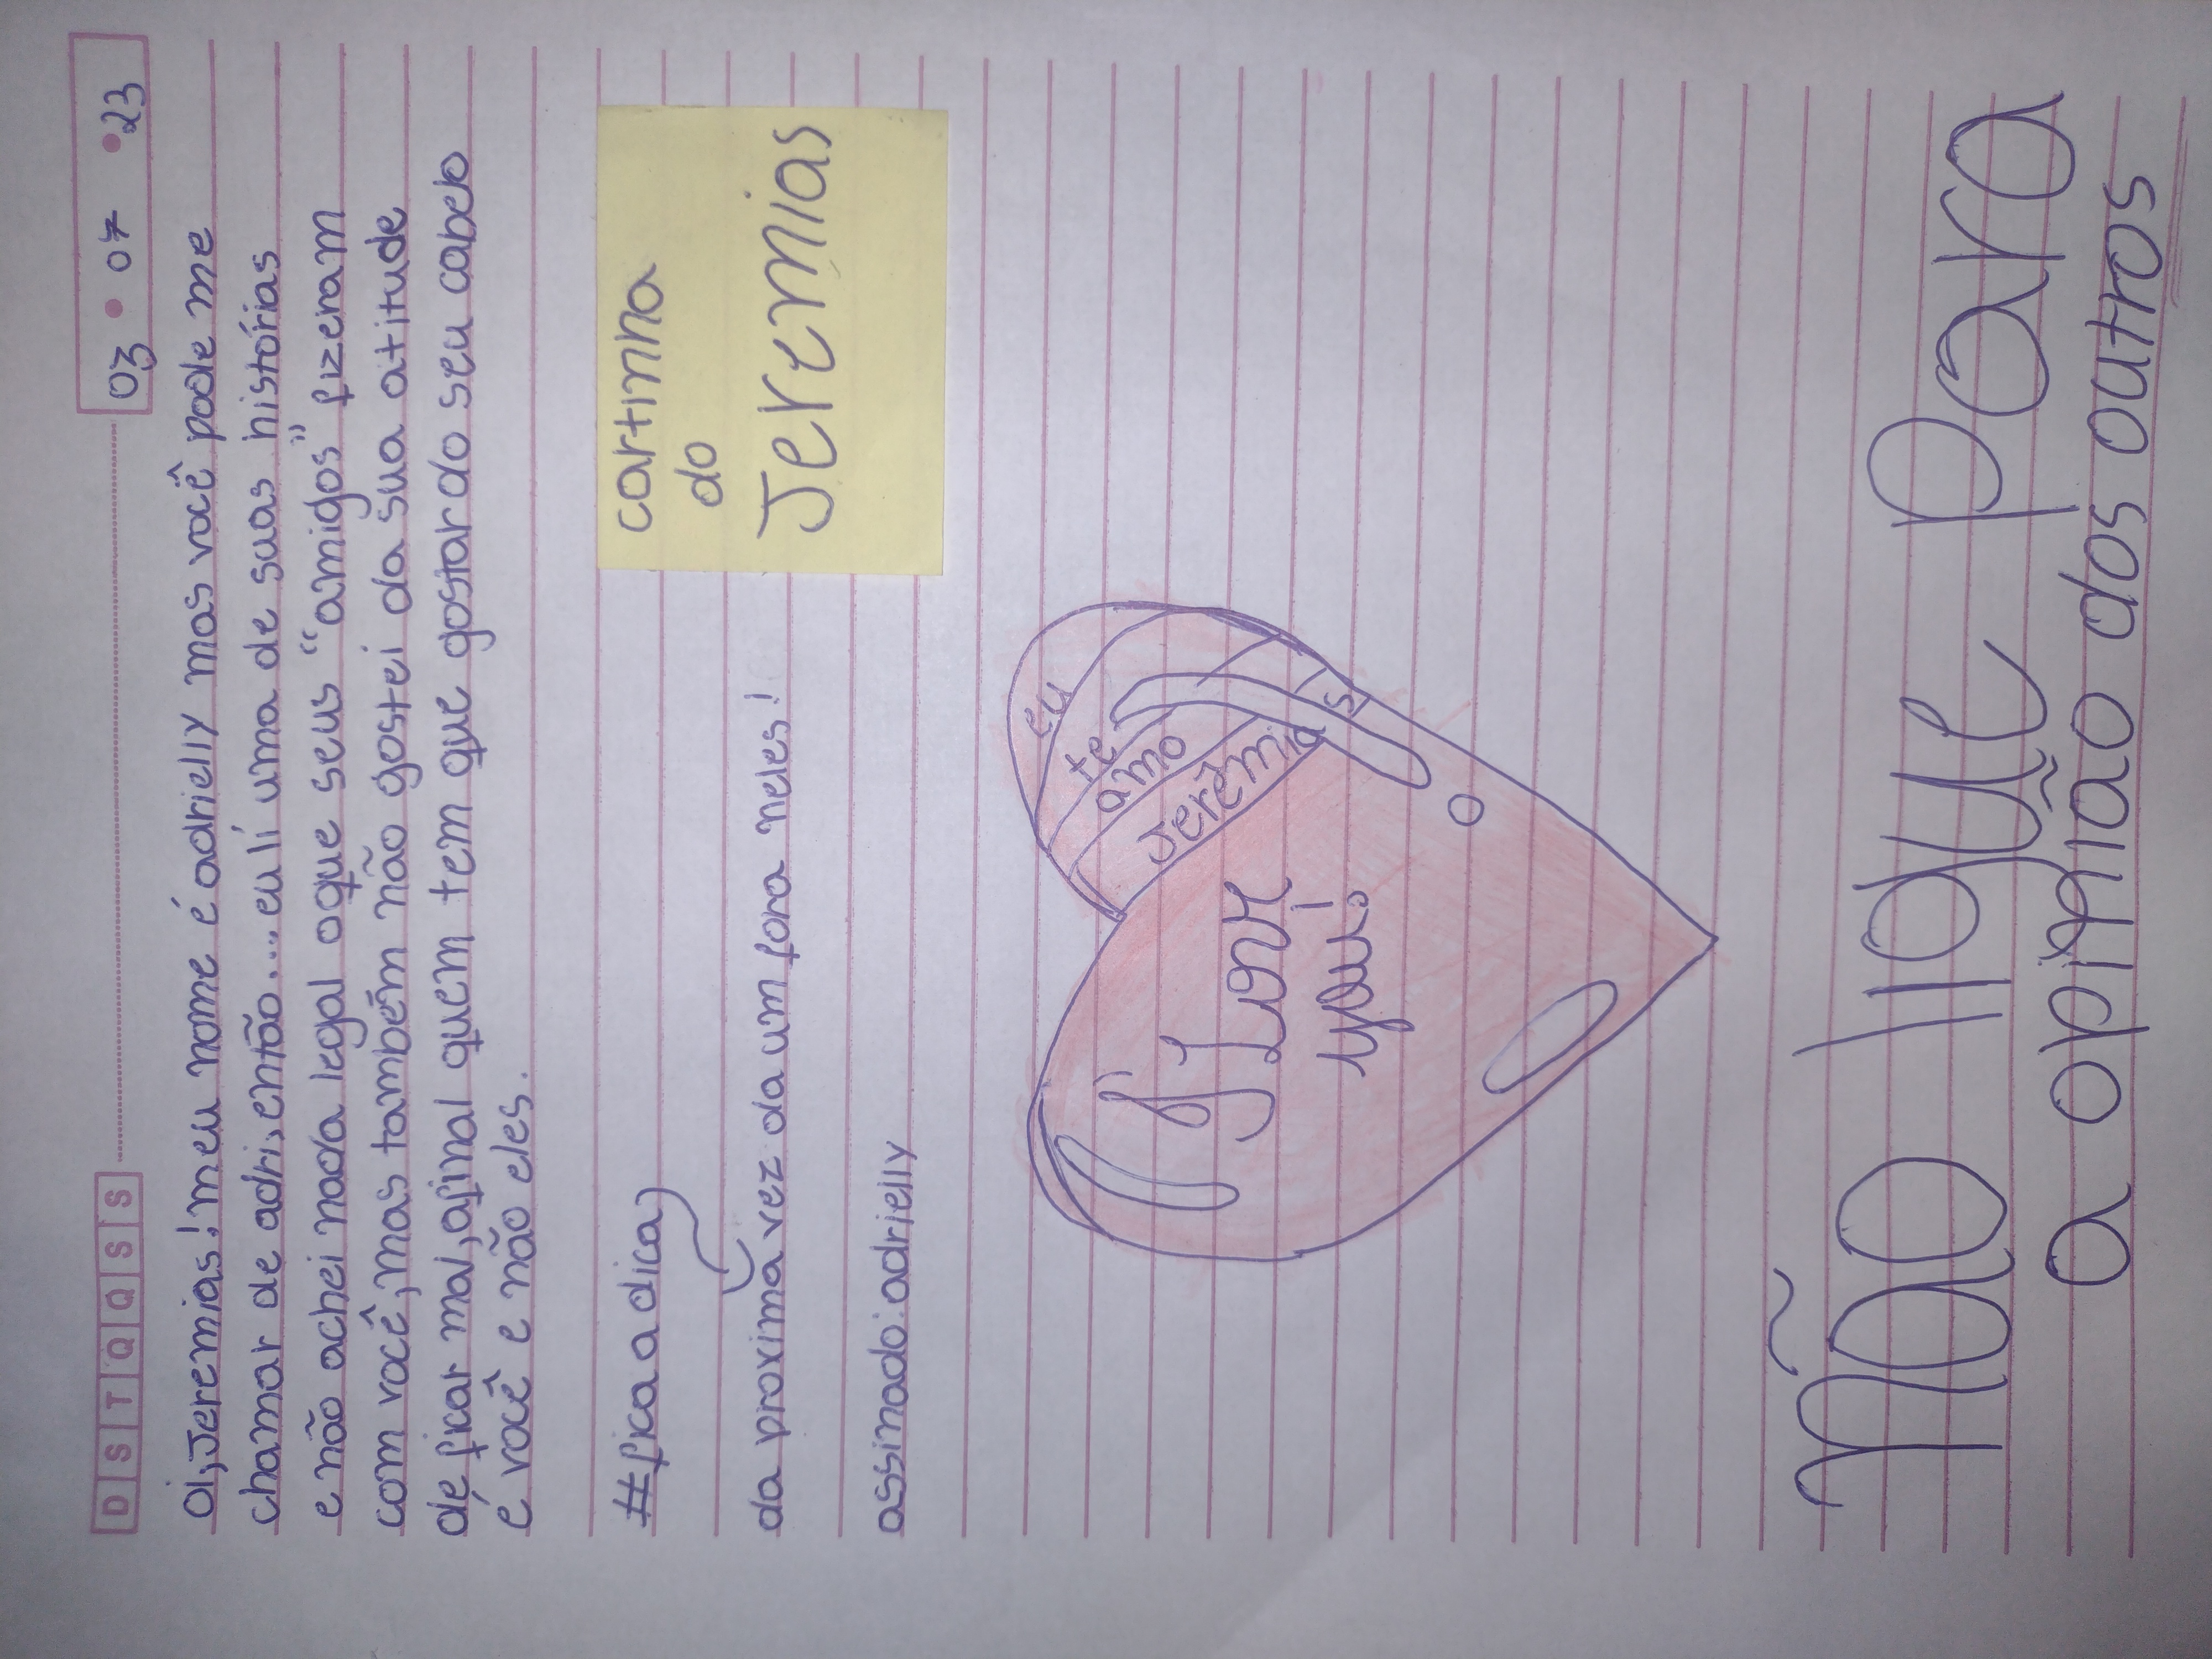 D S T Q Q S S
03 • 07 • 23
Oi, Jeremias! meu nome é adrielly mas você pode me
chamar de adri, então.... eu lí uma de suas histórias
e não achei nada legal oque seus "amigos" fizeram
com você, mas também não gostei da sua atitude
de ficar mal, afinal quem tem que gostar do seu cabelo
é você e não eles.
#fica a dica
cartinha
do
Jeremias
da proxima vez da um fora neles!
assinado: adrielly
eu
te
amo
Jerêmias
I Love
you!
Não ligue Para
a opinião dos outros